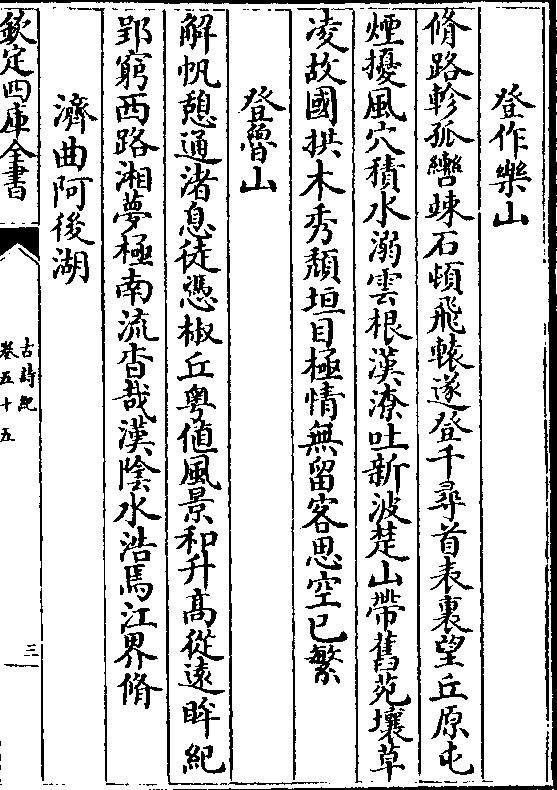 登作樂山
脩路軫孤轡竦石頓飛轅遂登千尋首表裏望丘原屯
煙擾風穴積水溺雲根漢潦吐新波楚山帶舊苑壤草
凌故國拱木秀頹垣目極情無留客思空已繁
登魯山
解帆憩通渚息徒憑椒丘粤值風景和升高從遠眸紀
郢窮西路湘夢極南流杳哉漢陰水浩焉江界脩
濟曲阿後湖
欽定四庫全書
古詩紀
卷五十五
三